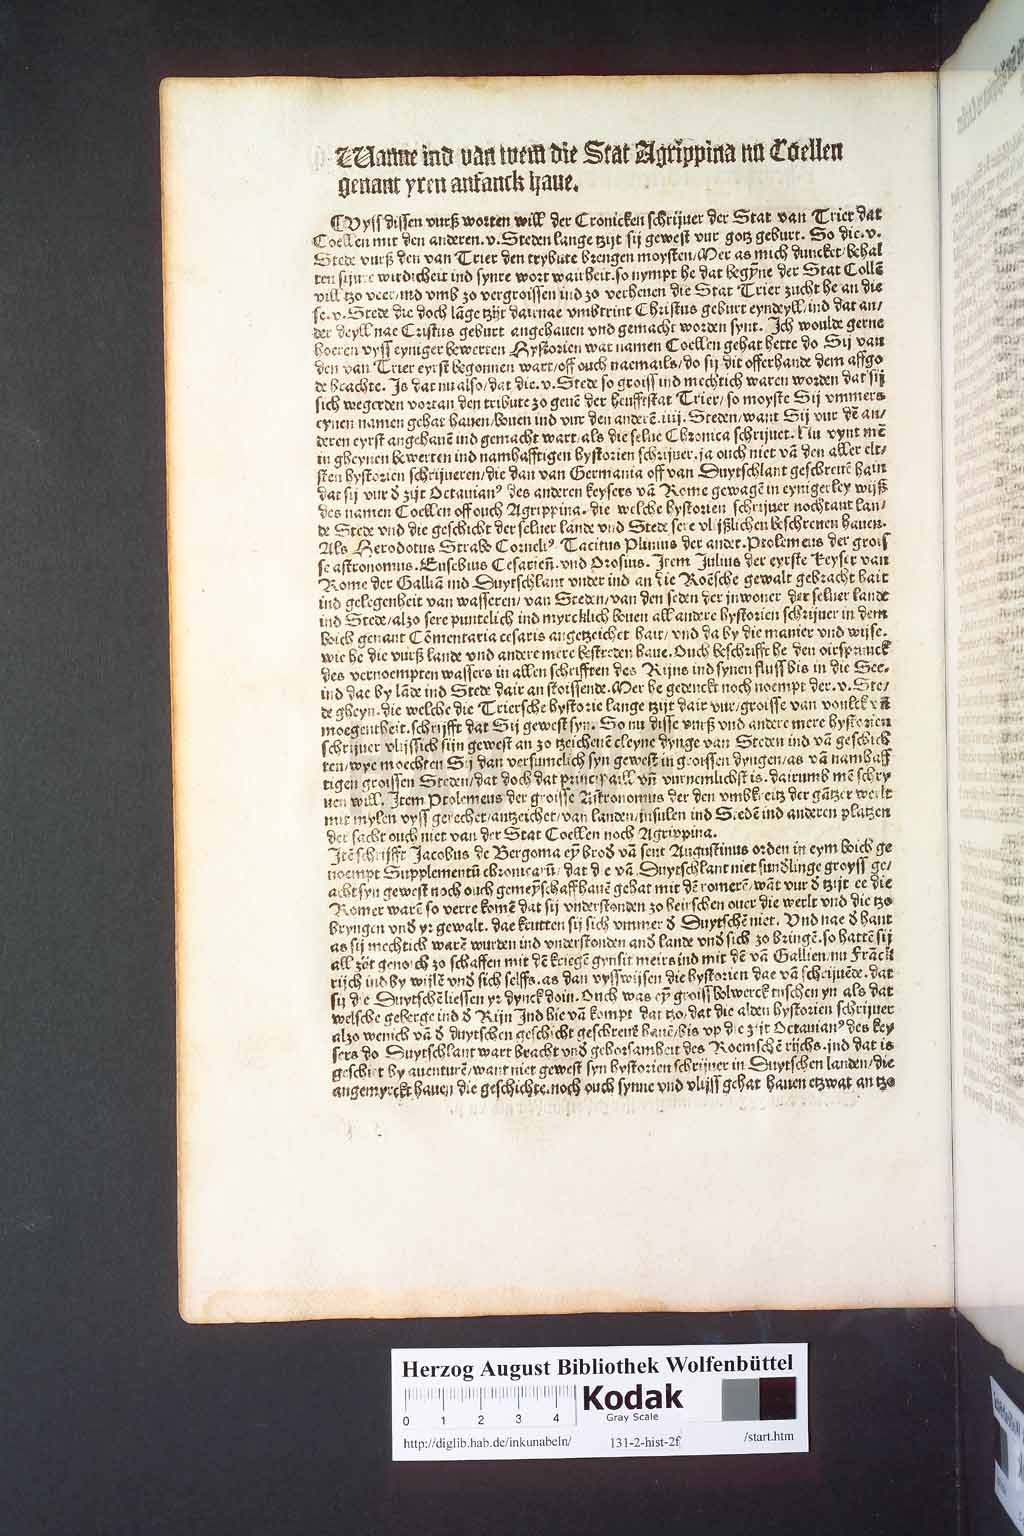 Wanne ind van wem die Stat Agrippina nu Coellen
genant yren anfanck haue.
Uyss dissen vurß worten will der Cronicken schrijuer der Stat van Trier dat
Coellen mit den anderen .v. Steden lange tzijt sij gewest vur gotz geburt. So die .v.
Stede vurß den van Trier den trybute brengen moysten/Mer as mich duncket/behal
ten sijnre wirdicheit ind synre wort warheit. so nympt he dat begyñe der Stat Collẽ
vill tzo veer/ind vmb zo vergroissen ind zo verheuen die Stat Trier zucht he an die
se .v. Stede die doch lãge tzijt dairnae vmbtrint Christus geburt eyndeyll/ind dat an/
der deyll nae Cristus geburt angehauen vnd gemacht worden synt. Ich woulde gerne
hoeren vyss eyniger bewerten Hystorien wat namen Coellen gehat hette do Sij van
den van Trier eyrst begonnen wart/off ouch naemails/do sij dit offerhande dem affgo
de brachte. Is dat nu also/dat die .v. Stede so groiss ind mechtich waren worden dat sij
sich wegerden vortan den tribute zo geuẽ der heufftstat Trier/so moyste Sij vmmers
eynen namen gehat hauen/bouen ind vur den anderẽ .iiij. Steden/want Sij vur dẽ an/
deren eyrst angehauẽ ind gemacht wart/als die selue Chronica schrijuet. Nu vynt mẽ
in gheynen bewerten ind namhafftigen hystorien schrijuer. ja ouch niet vã den aller elt/
sten hystorien schrijueren/die dan van Germania off van Duytschlant geschreuẽ hain
dat sij vur d zijt Octauianꝰ des anderen keysers vã Rome gewagẽ in eynigerley wijß
des namen Coellen off ouch Agrippina. die welche hystorien schrijuer nochtant lan/
de Stede vnd die geschicht der seluer lande vnd Stede sere vlijßlichen beschreuen hauen.
Als Herodotus Strabo Corneliꝰ Tacitus Plinius der ander. Ptolemeus der grois
se astronomus. Eusebius Cesarieñ. vnd Orosius. Item Julius der eyrste keyser van
Rome der Galliã ind Duytschlant vnder ind an die Roẽsche gewalt gebracht hait
ind gelegenheit van wasseren/van Steden/van den seden der jnwoner der seluer lande
ind Stede/alzo sere puntelich ind myrcklich bouen all andere hystorien schrijuer in dem
boich genant Cõmentaria cesaris angetzeichet hait/vnd da by die manier vnd wijse.
wie he die vurß lande vnd andere mere bestreden haue. Ouch beschrifft he den oirspranck
des vernoempten wassers in allen schrifften des Rijns ind synen fluss bis in die See.
ind dae by lãde ind Stede dair an stoissende. Mer he gedenckt noch noempt der .v. Ste/
de gheyn. die welche die Triersche hystorie lange tzijt dair vur/groisse van voulck vñ
moegentheit. schrijfft dat Sij gewest syn. So nu disse vurß vnd andere mere hystorien
schrijuer vlijssich sijn gewest an zo tzeichenẽ cleyne dynge van Steden ind vã geschich
ten/wye moechten Sij dan versumelich syn gewest in groissen dyngen/as vã namhaff
tigen groissen Steden/dat doch dat principaill vñ vurnemlichst is. dairumb mẽ schry
uen will. Item Ptolemeus der groisse Astronomus der den vmbkreitz der gãtzer werlt
mit mylen vyss gerechet/antzeichet/van landen/jnsulen ind Stedẽ ind anderen platzen
der sacht ouch niet van der Stat Coellen noch Agrippina.
Itẽ schrijfft Jacobus de Bergoma eỹ brod vã sent Augustinus orden in eym boich ge
noempt Supplementũ chronicarũ/dat die vã Duytschlant niet sunderlinge groyss ge/
acht syn gewest noch ouch gemeyschaff hauẽ gehat mit dẽ romerẽ/wãt vur d tzijt ee die
Romer warẽ so verre komẽ dat sij vnderstonden zo heirschen ouer die werlt vnd die tzo
bryngen vnd yr gewalt. dae krutten sij sich vmmer d Duytschẽ niet. Vnd nae d hant
as sij mechtich warẽ wurden ind vnderstonden and lande vnd sich zo bringẽ. so hattẽ sij
all zijt genoich zo schaffen mit dẽ kriegẽ gynsit meirs ind mit dẽ vã Gallien/nu Franck
rijch ind by wijlẽ vnd sich selffs. as dan vysswijsen die hystorien dae vã schrijuẽde. dat
sij die Duytschẽ liessen yr dynck doin. Ouch was eỹ groiss bolwerck tuschen yn als dat
welsche geberge ind d Rijn Ind hie vã kompt dat tzo/dat die alden hystorien schrijuer
alzo wenich vã d duytschen geschicht geschreuẽ hauẽ/bis vp die zijt Octauianꝰ des key
sers do Duytschlant wart bracht vnd gehorsamheit des Roemschẽ rijchs. ind dat is
geschiet by auenturẽ/want niet gewest syn hystorien schrijuer in Duytschen landen/die
angemyrckt hauen die geschichte. noch ouch synne vnd vlijss gehat hauen etzwat an tzo
Herzog August Bibliothek Wolfenbüttel
0 1 2 3 4
Kodak
Gray Scale
http://diglib.hab.de/inkunabeln/ 131-2-hist-2f /start.htm